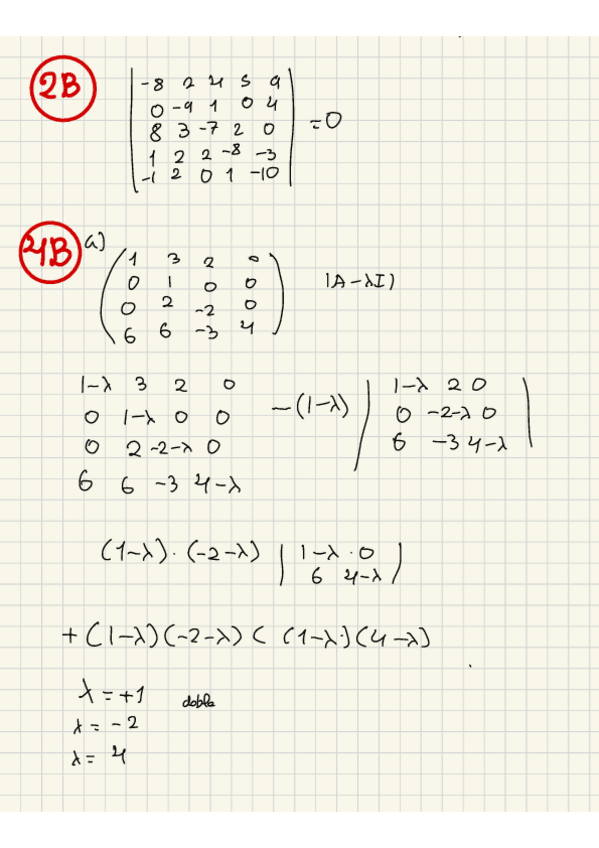 2B
-8 2 4 5 9
0 -9 1 0 4
8 3 -7 2 0
1 2 2 -8 -3
-1 2 0 1 -10
=0
4B a)
1 3 2 0
0 1 0 0
0 2 -2 0
6 6 -3 4
|A-λI|
1-λ 3 2 0
0 1-λ 0 0
0 2 -2-λ 0
6 6 -3 4-λ
-(1-λ)
1-λ 2 0
0 -2-λ 0
6 -3 4-λ
(1-λ)·(-2-λ)
1-λ · 0
6 4-λ
+(1-λ)(-2-λ)( (1-λ·)(4-λ)
λ=+1 doble
λ= -2
λ= 4